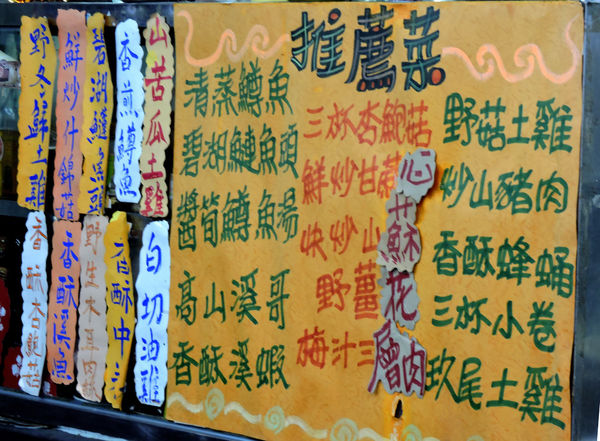 推薦菜
清蒸鱒魚
碧湖鰱魚頭
醬筍鱒魚湯
高山溪哥
香酥溪蝦
三杯杏鮑菇
鮮炒甘蔗心
快炒山蘇
野薑花
梅汁三層肉
野菇土雞
炒山豬肉
香酥蜂蛹
三杯小卷
玖尾土雞
山苦瓜土雞
香煎鱒魚
鮮炒什錦菇
白切油雞
香酥中
香酥溪魚
香酥杏鮑菇